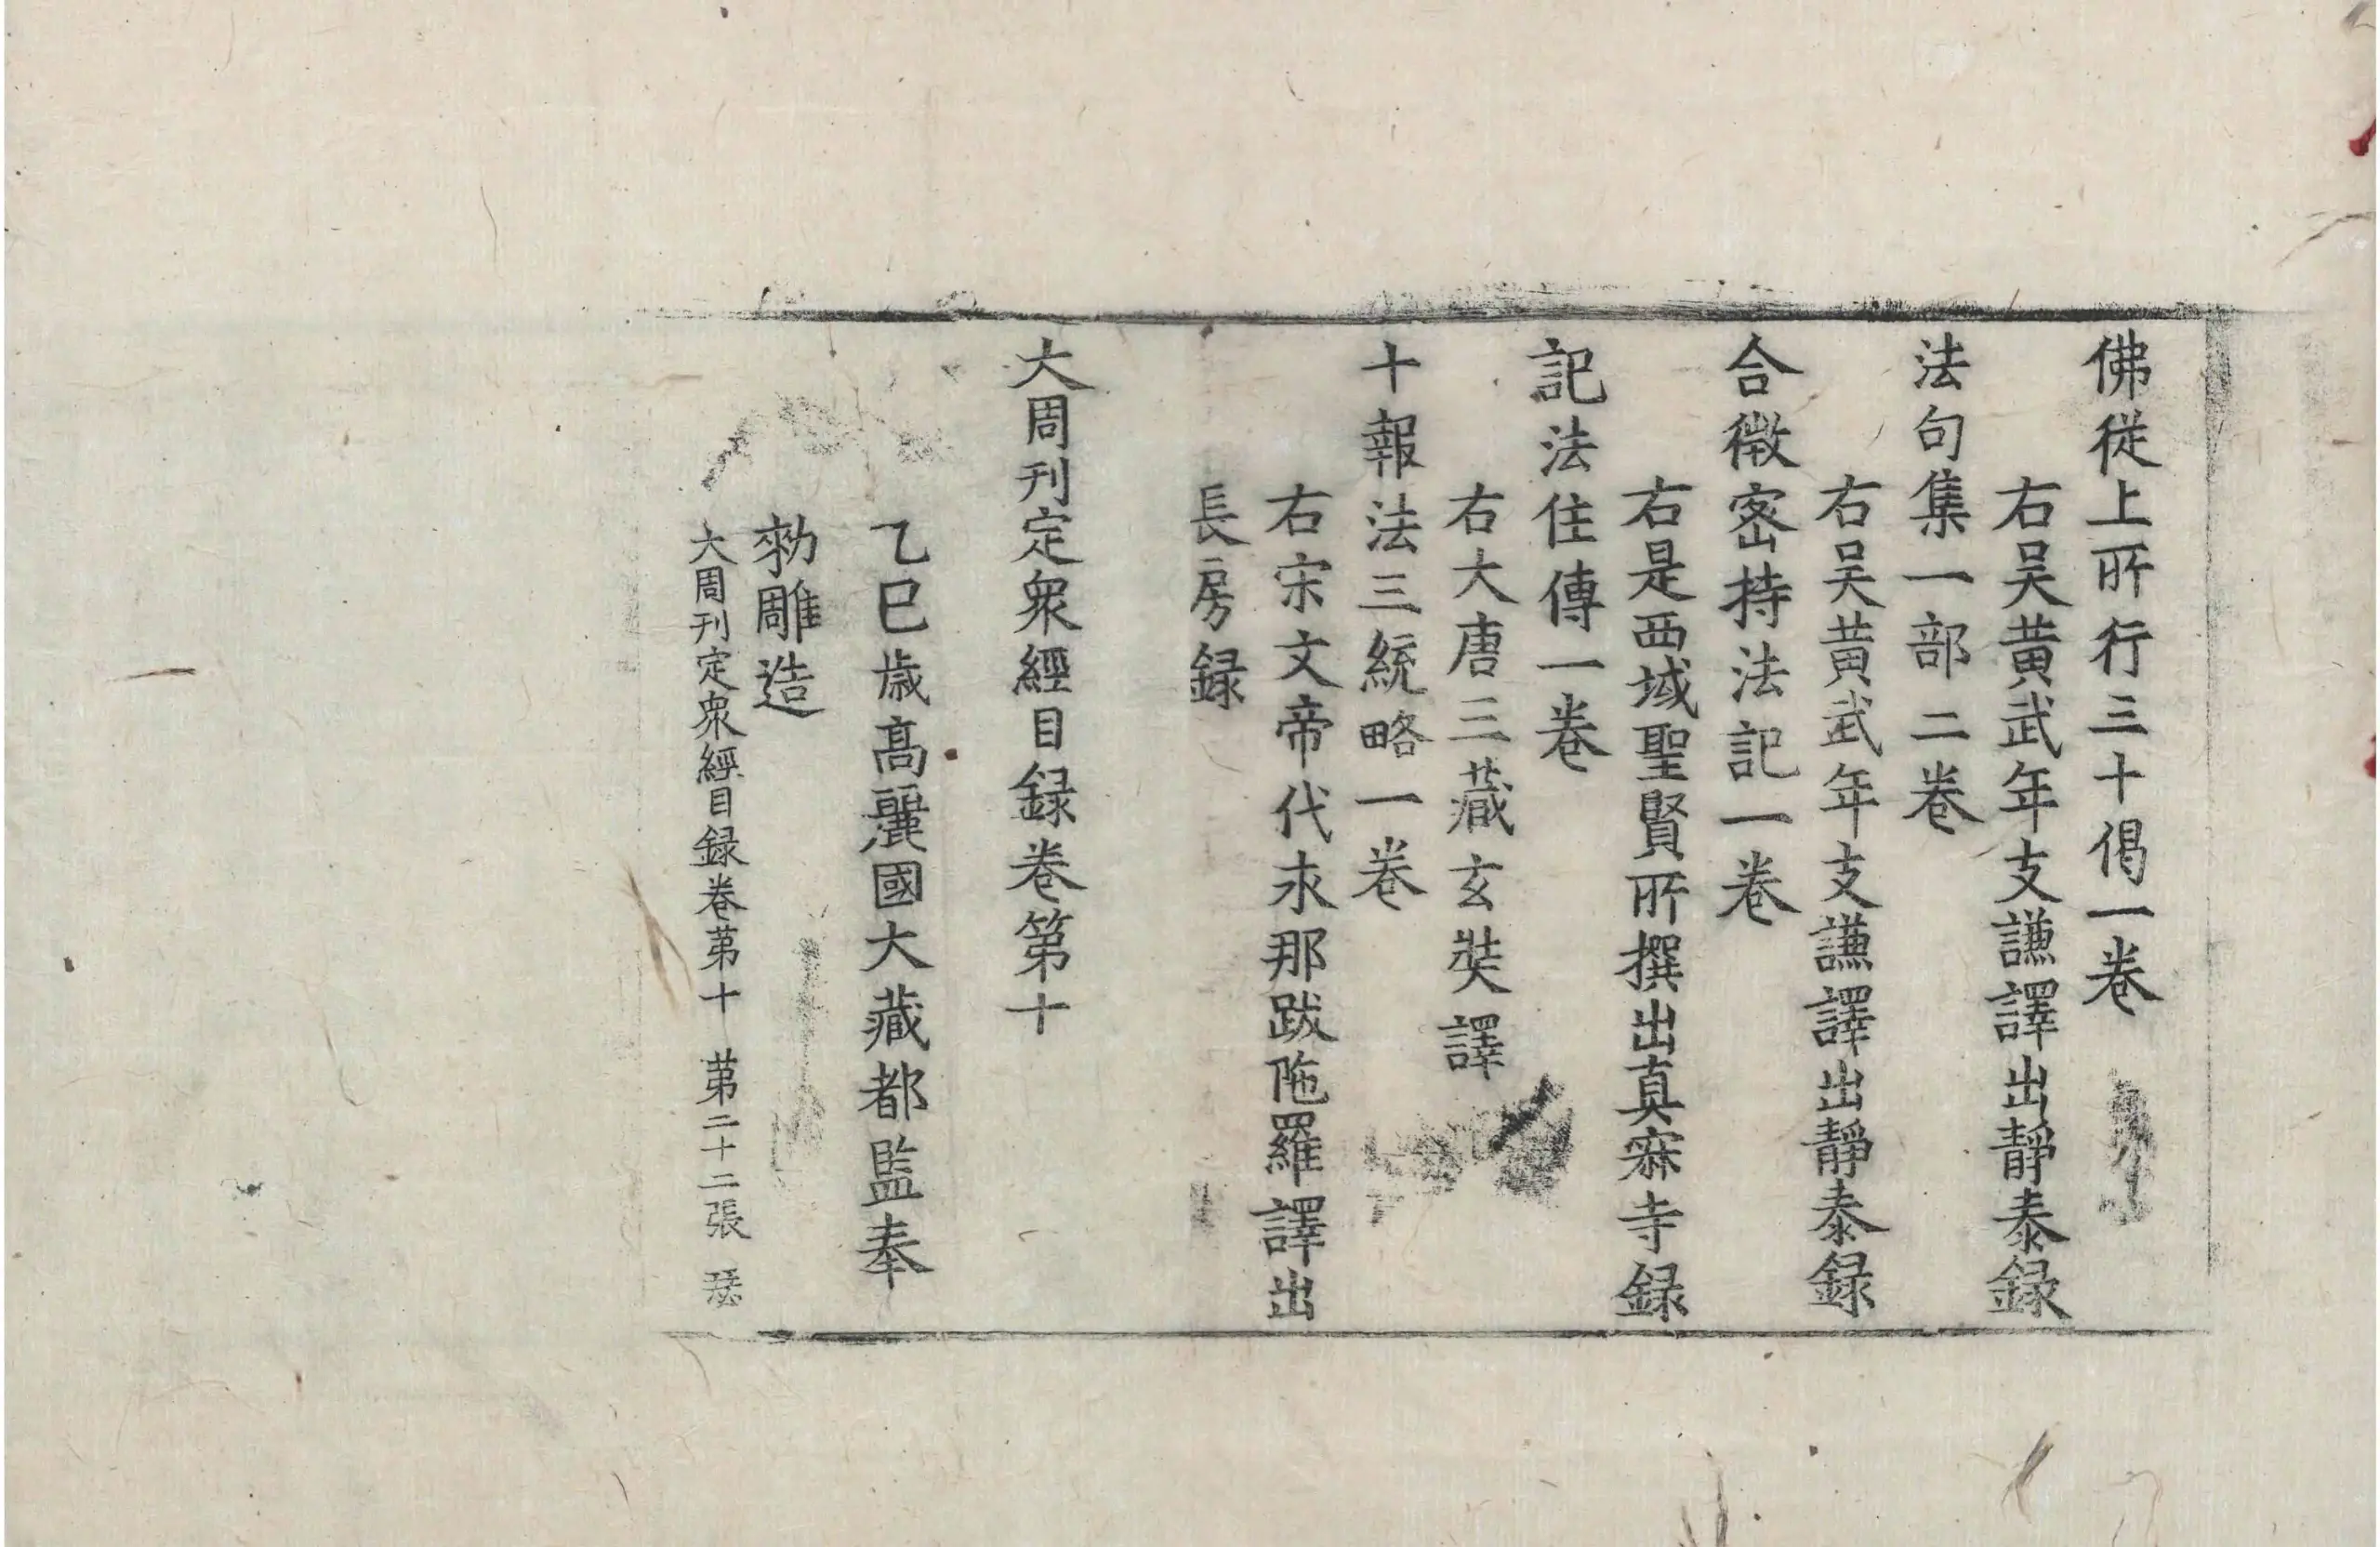 佛從上所行三十偈一卷
右吴黄武年支謙譯出靜泰録
法句集一部二卷
右吴黄武年支謙譯出靜泰録
合微密持法記一卷
右是西域聖賢所撰出真寂寺録
記法住傳一卷
右大唐三藏玄奘譯
十報法三統略一卷
右宋文帝代求那跋陁羅譯出
長房録
大周刊定衆經目録卷第十
乙巳歳髙麗國大藏都監奉
勑雕造
大周刊定衆經目録卷苐十 苐二十二張